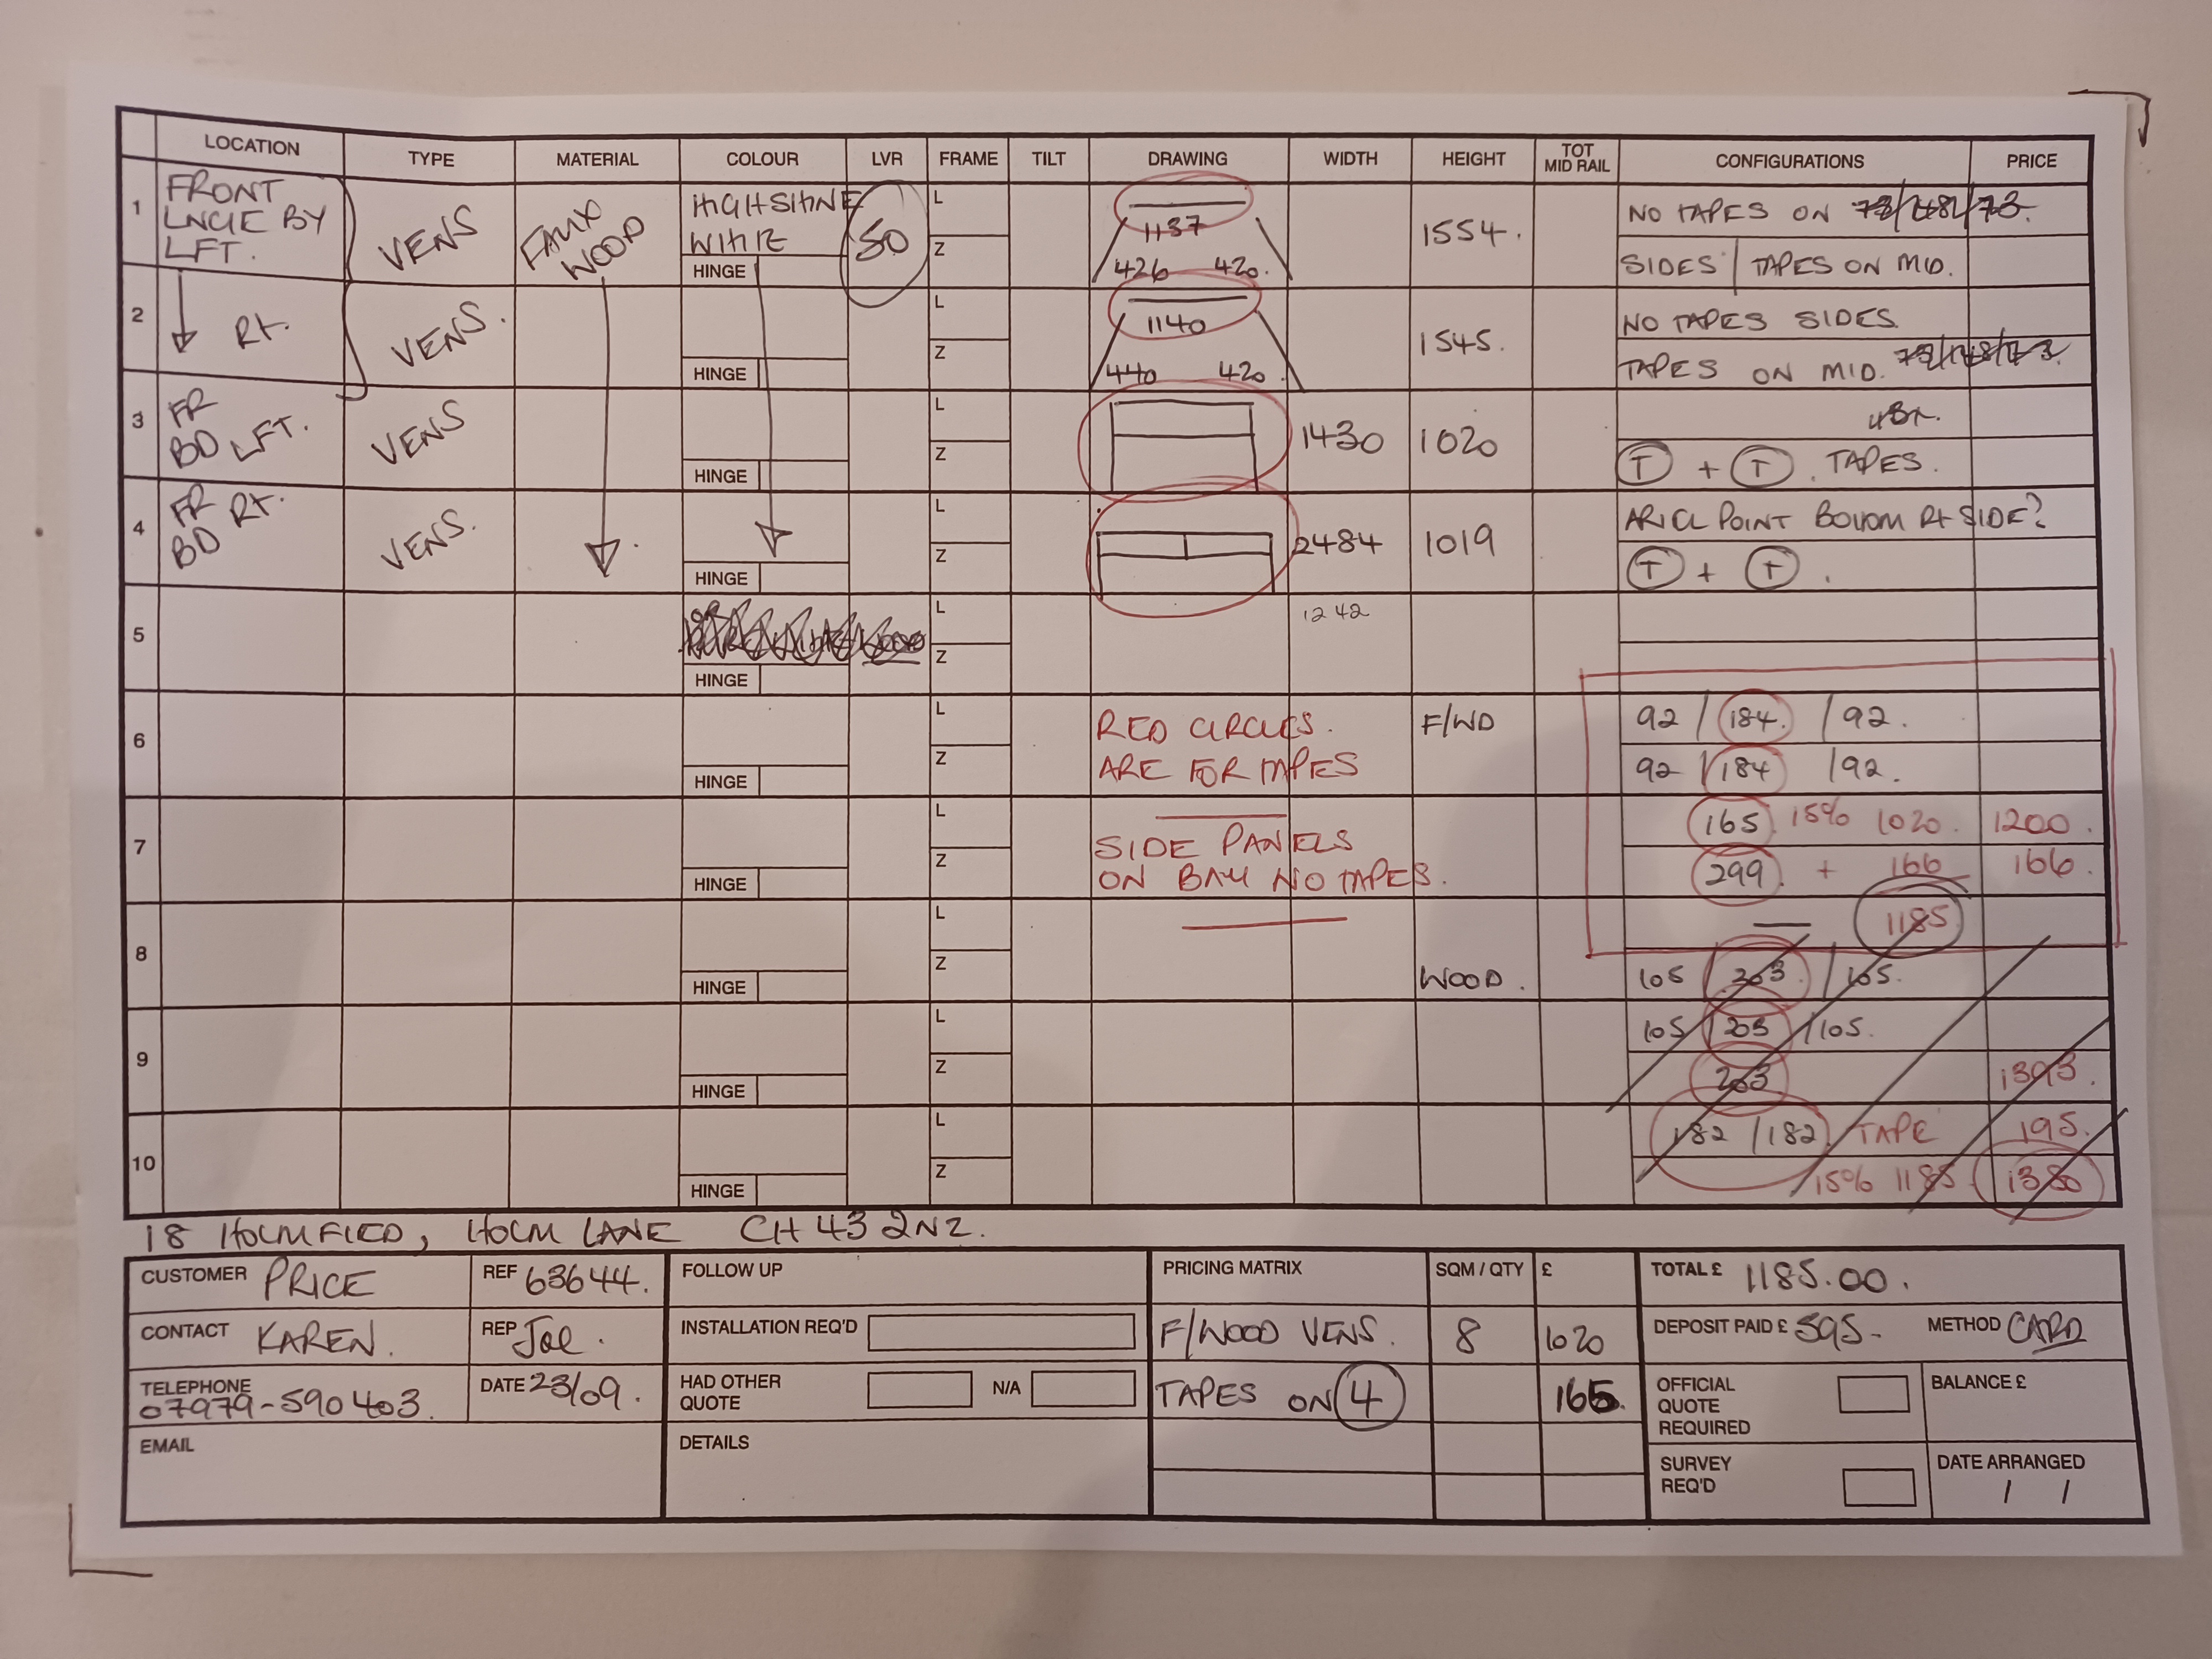 LOCATION TYPE MATERIAL COLOUR LVR FRAME TILT DRAWING WIDTH HEIGHT TOT MID RAIL CONFIGURATIONS PRICE
1 FRONT LNGE BY LFT. VENS FAUX WOOD HIGHSHINE WHITE 50 L Z HINGE
1137
426 420.
1554.
NO TAPES ON 73/148/73.
SIDES / TAPES ON MID.
2 Rt. VENS. L Z HINGE
1140
440 420.
1545.
NO TAPES SIDES.
TAPES ON MID. 73/148/73
3 FR BD LFT. VENS L Z HINGE 1430 1020
T + T. TAPES.
4 FR BD Rt. VENS. L Z HINGE 2484 1019
POINT BOTTOM Rt SIDE?
T + T.
5 L Z HINGE
1242
6 L Z HINGE
RED CIRCLES.
ARE FOR TAPES
F/WD
92 / 184. / 92.
92 / 184 / 92.
7 L Z HINGE
SIDE PANELS
ON BAY NO TAPES.
165. 15% 1020. 1200.
299. + 166 166.
8 L Z HINGE
1185
WOOD. 105 / 203. / 105.
9 L Z HINGE
105 / 203 / 105.
203 1393.
10 L Z HINGE
182 / 182 / TAPE 195.
15% 1185 1380
18 HOLMFIED, HOLM LANE CH43 2NZ.
CUSTOMER PRICE REF 63644.
CONTACT KAREN. REP Joe.
TELEPHONE 07979-590403. DATE 23/09.
EMAIL
FOLLOW UP
INSTALLATION REQ'D
HAD OTHER QUOTE N/A
DETAILS
PRICING MATRIX SQM / QTY £
F/WOOD VENS. 8 1020
TAPES ON 4 165.
TOTAL £ 1185.00.
DEPOSIT PAID £ 595- METHOD CARD
OFFICIAL QUOTE REQUIRED BALANCE £
SURVEY REQ'D DATE ARRANGED
/ /